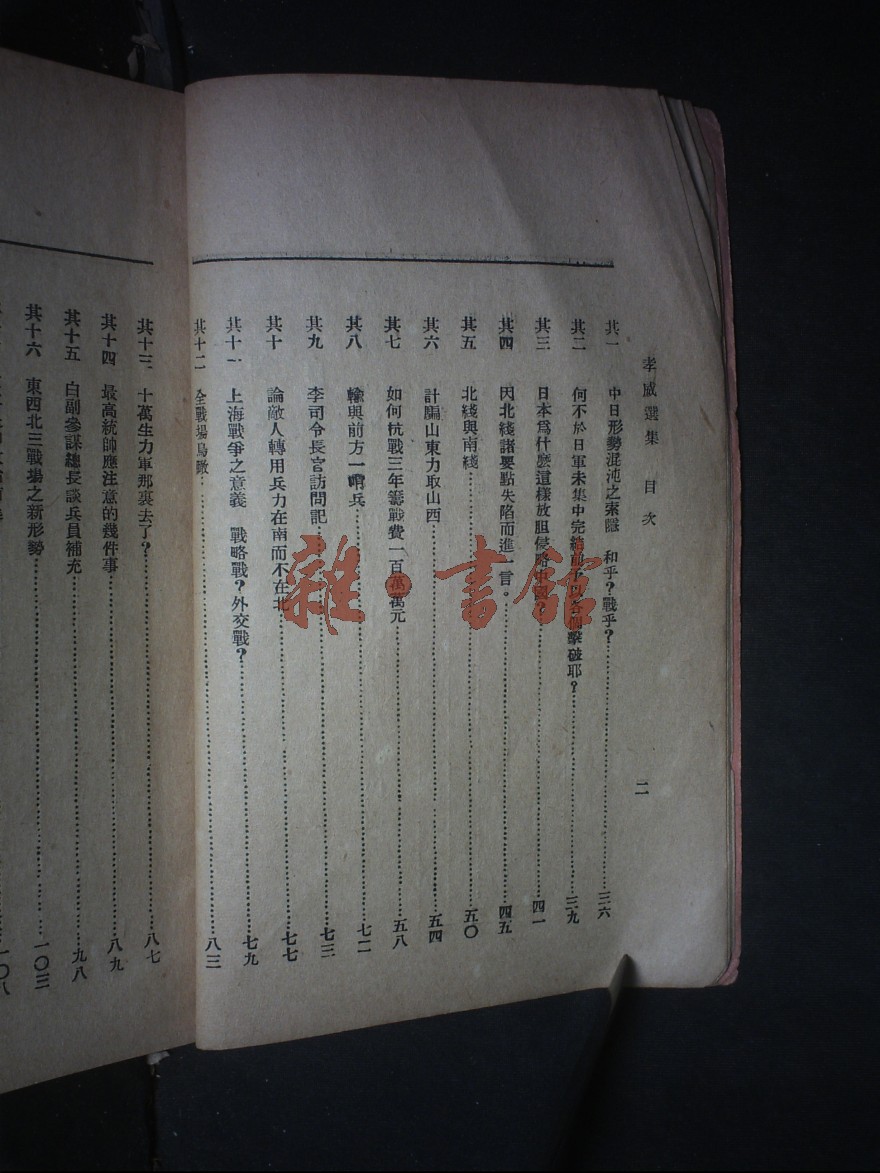 孝威選集　目次
二
其一　中日形勢混沌之索隱　和乎？戰乎？……三六
其二　何不於日軍未集中完結前予以各個擊破耶？……三九
其三　日本爲什麽這樣放胆侵略中國？……四一
其四　因北綫諸要點失陷而進一言。……四五
其五　北綫與南綫……五〇
其六　計騙山東力取山西……五四
其七　如何抗戰三年籌戰費一百萬萬元……五八
其八　輸與前方一哨兵……七二
其九　李司令長官訪問記……七三
其十　論敵人轉用兵力在南而不在北……七七
其十一　上海戰爭之意義　戰略戰？外交戰？……七九
其十二　全戰場鳥瞰……八三
其十三　十萬生力軍那裏去了？……八七
其十四　最高統帥應注意的幾件事……八九
其十五　白副參謀總長談兵員補充……九八
其十六　東西北三戰場之新形勢……一〇三
一〇八
雜·書館